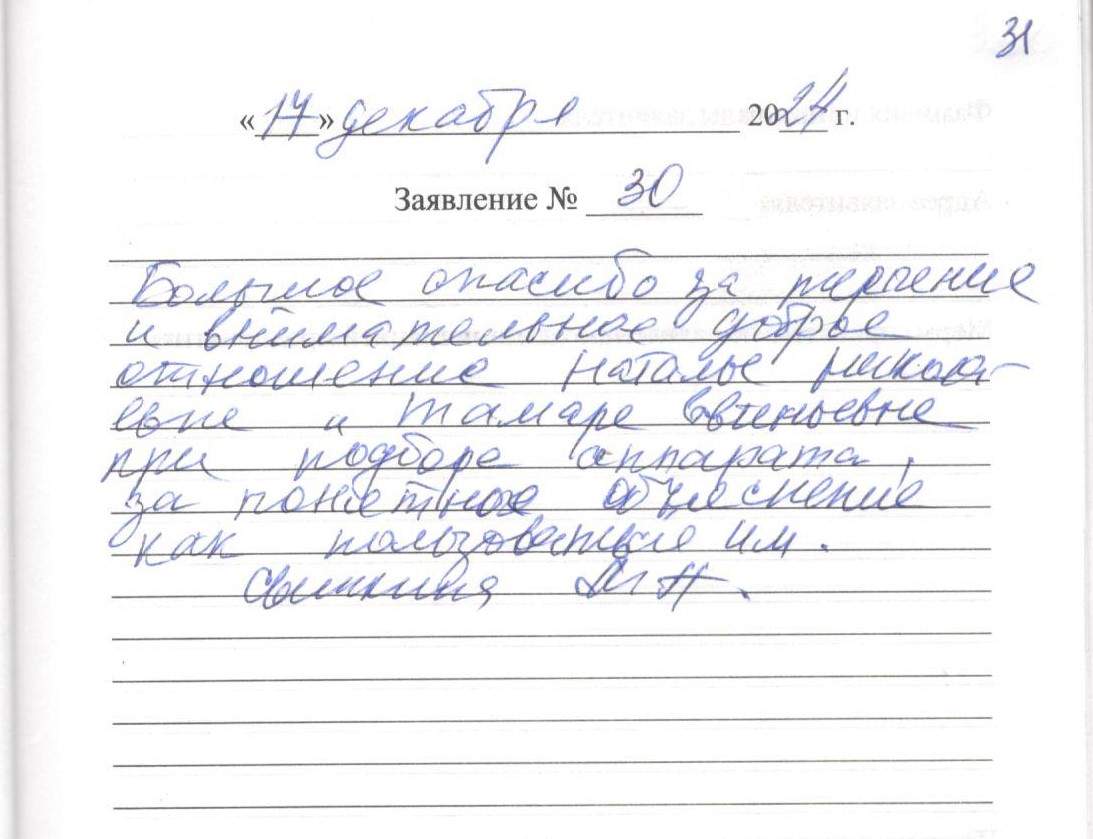 31
«17» декабря 2024 г.
Заявление № 30
Большое спасибо за терпение
и внимательное доброе
отношение Наталье Никола-
евне и Тамаре Евгеньевне
при подборе аппарата,
за понятное объяснение
как пользоваться им.